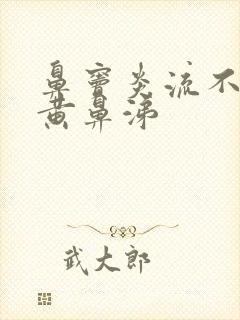 鼻窦炎流不
黄鼻涕
武大郎